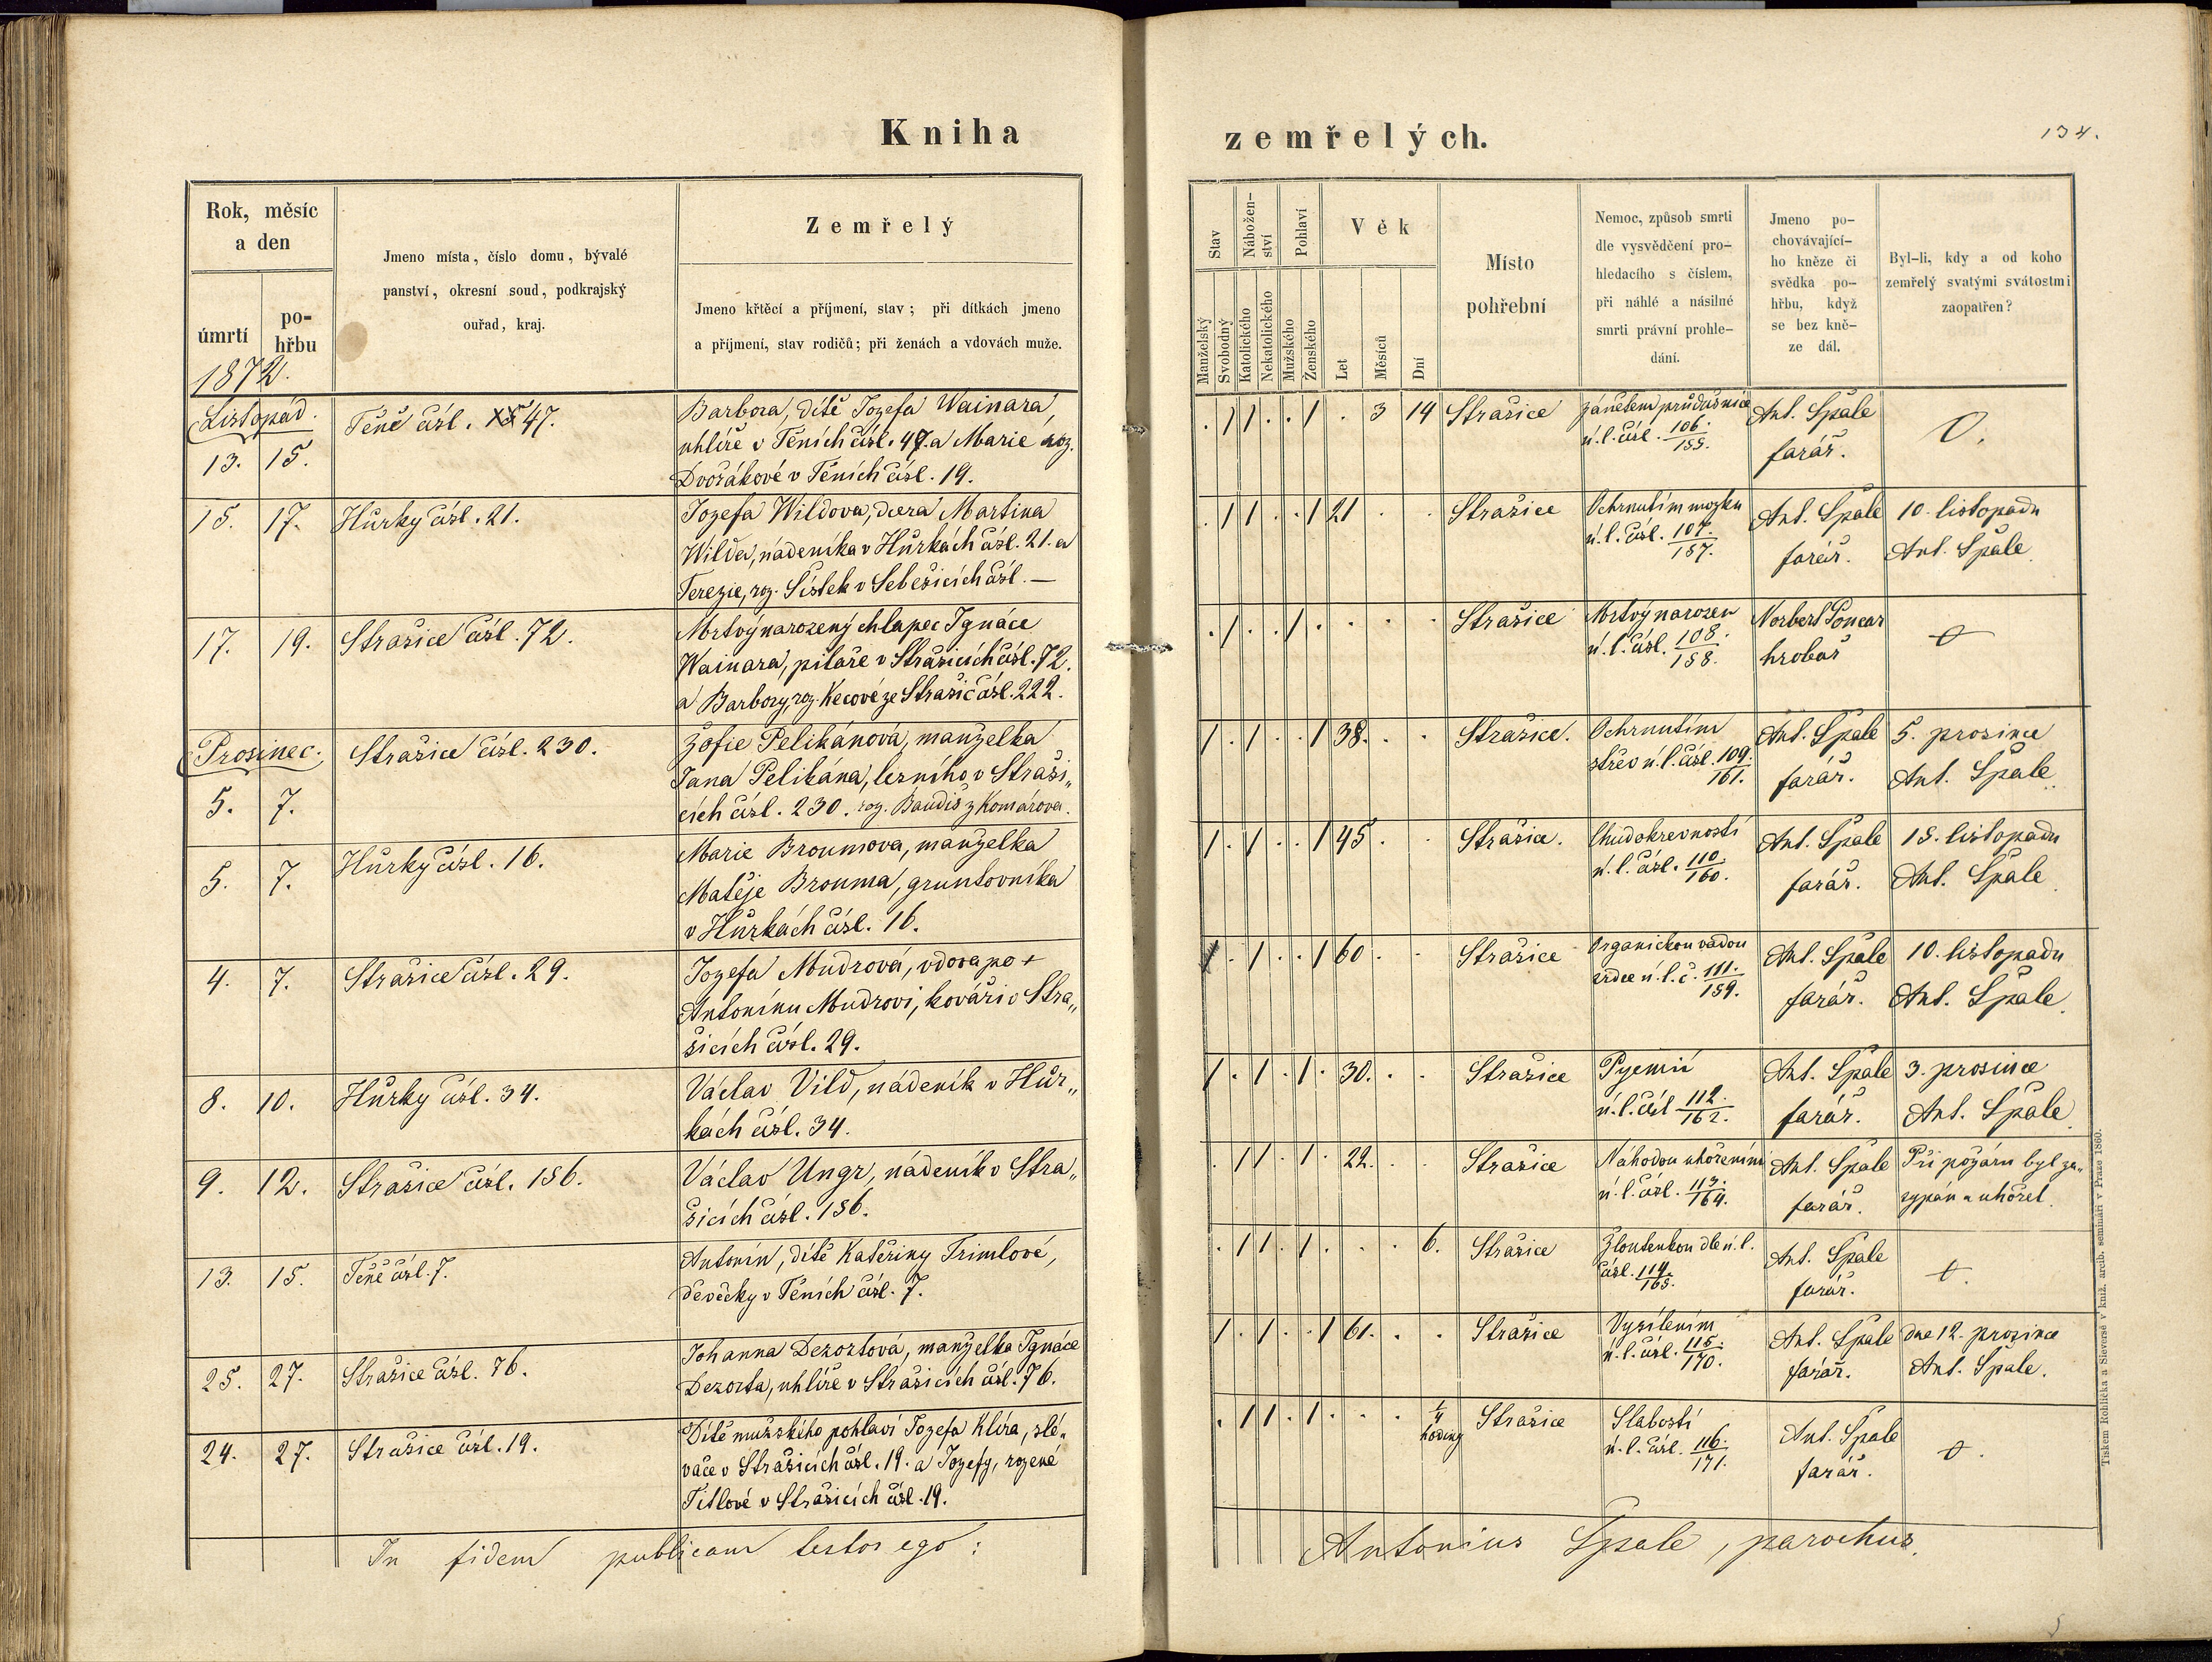 Kniha
zemřelých.
134.
Rok, měsíc
a den
úmrtí
po-
hřbu
Jmeno místa, číslo domu, bývalé
panství, okresní soud, podkrajský
ouřad, kraj.
Zemřelý
Jmeno křtěcí a příjmení, stav; při dítkách jmeno
a příjmení, stav rodičů; při ženách a vdovách muže.
Stav
Manželský
Svobodný
Nábožen-
ství
Katolického
Nekatolického
Pohlaví
Mužského
Ženského
Věk
Let
Měsíců
Dní
Místo
pohřební
Nemoc, způsob smrti
dle vysvědčení pro-
hledacího s číslem,
při náhlé a násilné
smrti právní prohle-
dání.
Jmeno po-
chovávající-
ho kněze či
svědka po-
hřbu, když
se bez kně-
ze dál.
Byl-li, kdy a od koho
zemřelý svatými svátostmi
zaopatřen?
1872.
Listopad.
13. 15.
Těně čísl. 47.
Barbora, dítě Jozefa Wainara,
uhlíře v Těních čísl. 47. a Marie roz.
Dvořákové v Těních čísl. 19.
. / / . . / . 3 14
Strašice
zánětem průdušnice
ú. l. čísl. 106./155.
Ant. Špale
farář.
O.
15. 17.
Hůrky čísl. 21.
Jozefa Wildova, dcera Martina
Wilda, nádeníka v Hůrkách čísl. 21. a
Terezie, roz. Šístek v Sebečicích čísl. —
. / / . . / 21 . .
Strašice
Ochrnutím mozku
ú. l. čísl. 107./157.
Ant. Špale
farář.
10. listopadu
Ant. Špale
17. 19.
Strašice čísl. 72.
Mrtvý narozený chlapec Ignáce
Wainara, pilaře v Strašicích čísl. 72.
a Barbory, roz. Kecové ze Strašic čísl. 222.
. / . . / . . . .
Strašice
Mrtvý narozen
ú. l. čísl. 108./158.
Norbert Poncar
hrobař
O
Prosinec.
5. 7.
Strašice čísl. 230.
Žofie Pelikánová, manželka
Jana Pelikána, lesního v Straši„
cích čísl. 230. roz. Baudiš z Komárova.
/ . / . . / 38. . .
Strašice.
Ochrnutím
střev ú. l. čísl. 109./161.
Ant. Špale
farář.
5. prosince
Ant. Špale
5. 7.
Hůrky čísl. 16.
Marie Broumova, manželka
Matěje Brouma, gruntovníka
v Hůrkách čísl. 16.
/ . / . . / 45 . .
Strašice.
Chudokrevností
ú. l. čísl. 110./160.
Ant. Špale
farář.
15. listopadu
Ant. Špale
4. 7.
Strašice čísl. 29.
Jozefa Mudrová, vdova po +
Antonínu Mudrovi, kováři v Stra„
šicích čísl. 29.
/ . / . . / 60 . .
Strašice
Organickou vadou
srdce ú. l. č. 111./159.
Ant. Špale
farář.
10. listopadu
Ant. Špale
8. 10.
Hůrky čísl. 34.
Václav Vild, nádeník v Hůr„
kách čísl. 34.
/ . / . / . 30. . .
Strašice
Pyemií
ú. l. čísl 112./162.
Ant. Špale
farář.
3. prosince
Ant. Špale
9. 12.
Strašice čísl. 156.
Václav Ungr, nádeník v Stra„
šicích čísl. 156.
. / / . / . 22. . .
Strašice
Náhodou uhořením
ú. l. čísl. 113./164.
Ant. Špale
farář.
Při požáru byl za„
sypán a uhořel.
13. 15.
Těně čísl. 7.
Antonín, dítě Kateřiny Trimlové,
děvečky v Těních čísl. 7.
. / / . / . . . 6.
Strašice
Žloutenkou dle ú. l.
čísl. 114./165.
Ant. Špale
farář.
O.
25. 27.
Strašice čísl. 76.
Johanna Dezortová, manželka Ignáce
Dezorta, uhlíře v Strašicích čísl. 76.
/ . / . . / 61. . .
Strašice
Vysílením
ú. l. čísl. 115./170.
Ant. Špale
farář.
dne 12. prosince
Ant. Špale.
24. 27.
Strašice čísl. 19.
Dítě mužského pohlaví Jozefa Klíra, slé„
vače v Strašicích čísl. 19. a Jozefy, rozené
Titlové v Strašicích čísl. 19.
. / / . / . . . 1/4 hodiny
Strašice
Slabostí
ú. l. čísl. 116./171.
Ant. Špale
farář.
O.
In fidem publicam testor ego:
Antonius Špale, parochus.
Tiskem Rohlíčka a Sieversé v kníž. arcib. semináři v Praze 1860.